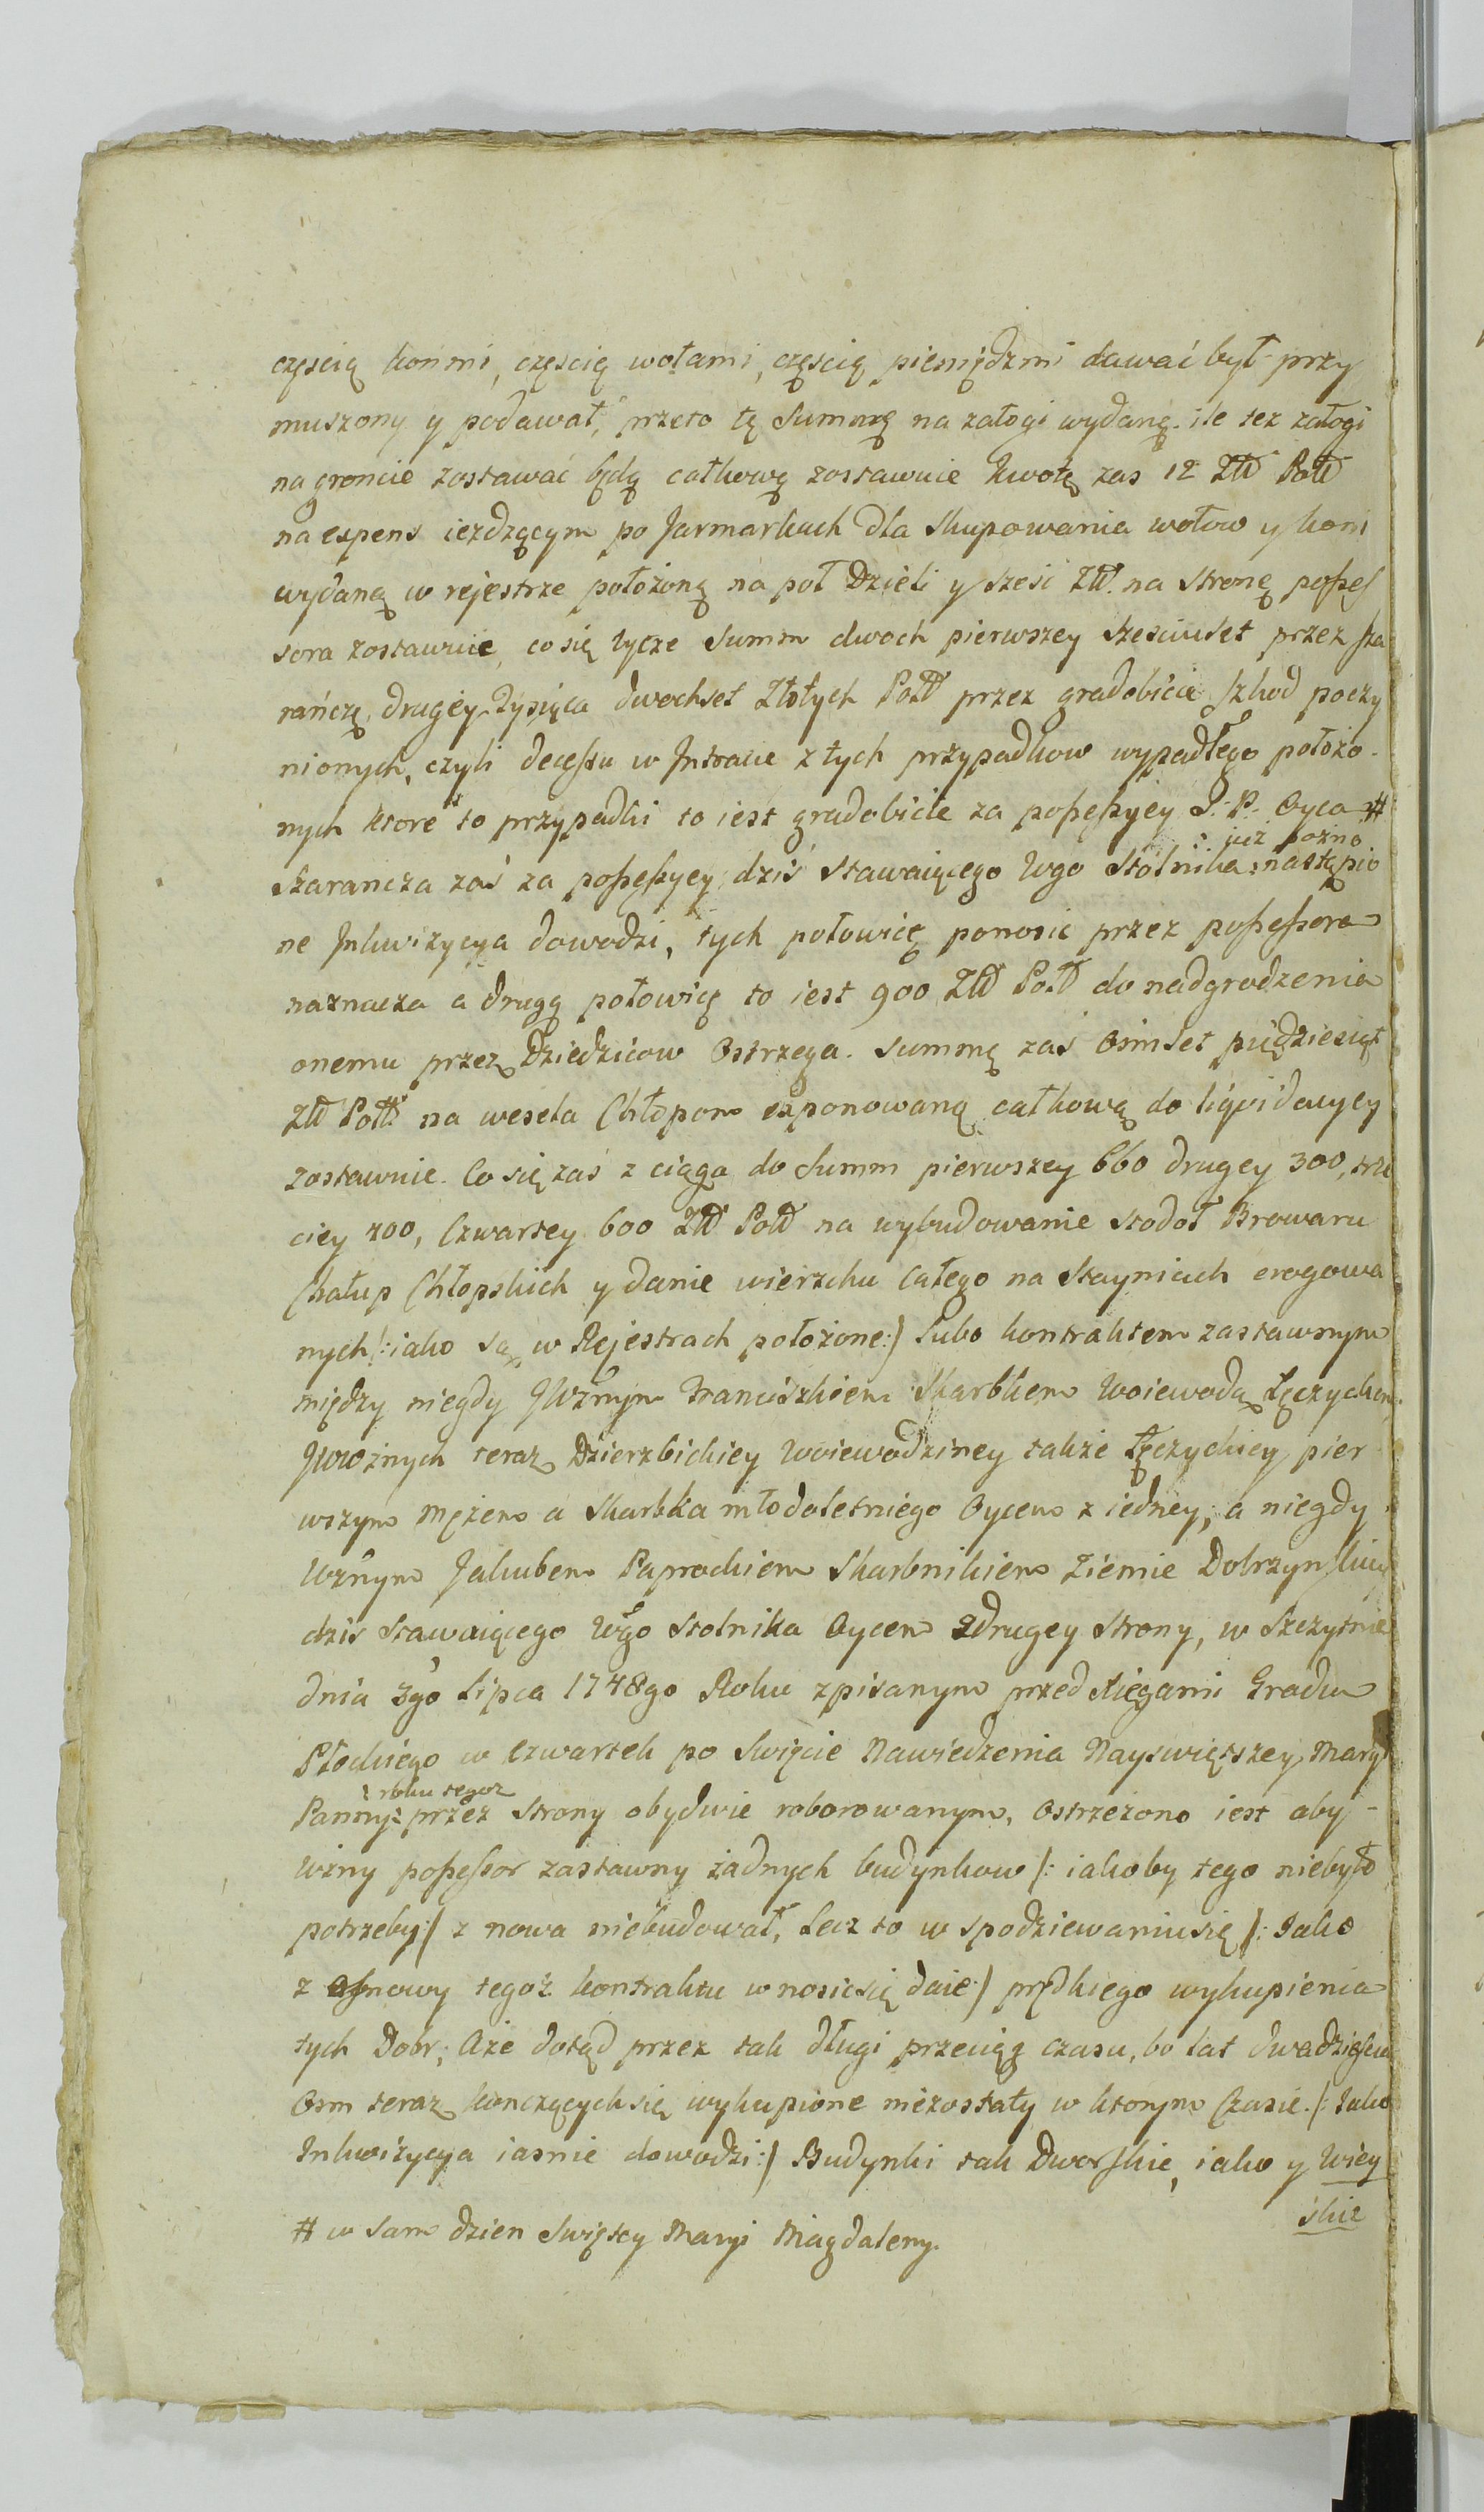 częscią końmi, częscią wołami, częscią pieniędzmi dawać był przy
muszony y podawał, przeto tę Summę na załogi wydaną. ile tez załogi
na groncie zostawać będą całkową zostawuie Kwotę zas 12 Złł Poll
na expens iezdzącym po Jarmarkach dla skupowania wołow y koni
wydaną w rejestrze położoną na poł Dzieli y sześć Złł. na stronę posses
sora zostawuie, co się tycze Summ dwoch pierwszey sześciuset przez sza
rańczę, drugiey Tysiąca dwochset Złotych Poll przez gradobicie szkod poczy
nionych, czyli decessu w Intracie z tych przypadkow wypadłego położo-
nych ktore to przypadki to iest gradobicie za possessyey Ś. P. Oyca #
: już pozno
Szarancza zaś za possessyey dziś stawaiącego Wgo Stolnika : nastąpio
ne Inkwizycya dowodzi, tych połowicę ponosic przez possessora
naznacza a drugą połowicę to iest 900 Złł Poll do nadgrodzenia
onemu przez Dziedzicow Ostrzega. Summę zaś Osimset pięćdziesiąt
Złł Poll na wesela Chłopom exponowaną całkową do liqvidacyey
zostawuie. Co się zaś z ciąga do Summ pierwszey 660 drugey 300, trze
ciey 400, Czwartey 600 Złł Poll na wybudowanie stodoł Browaru
Chałup Chłopskich y danie wierzchu całego na Stayniach erogowa
nych /: iako są w Rejestrach położone :/ lubo kontraktem zastawnym
między niegdy JWżnym Franciszkiem Skarbkiem Woiewodą Łęczyckim
JWWżnych teraz Dzierzbickiey Woiewodziney także Łęczyckiey pier
wszym Mężem a Skarbka młodoletniego Oycem z iedney; a niegdy
Wżnym Jakubem Paprockiem Skarbnikiem Ziemie Dobrzynskiey
dziś stawaiącego Wgo Stolnika Oycem z drugey strony, w Szczytnie
dnia 3go Lipca 1748go Roku zpisanym przed Xięgami Gradu
Płockiego w Czwartek po Swięcie Nawiedzenia Nayswiętszey Maryi
: roku tegoz
Panny : przez strony obydwie roborowanym, Ostrzeżono iest aby-
Wżny possessor zastawny żadnych budynkow /: iakoby tego niebyło
potrzeby :/ z nowa niebudował, Lecz to w spodziewaniusię /: Iako
z osnowy tegoż kontraktu wnosicsię daie :/ prędkiego wykupienia
tych Dobr; Aże dotąd przez tak długi przeciąg czasu, bo lat dwadziescia
Osm teraz kończącychsię wykupione niezostały w ktorym Czasie /: Iako
Inkwizycya iasnie dowodzi :/ Budynki tak Dworskie, iako y Wiey
skie
# w sam dzien Swiętey Maryi Magdaleny.